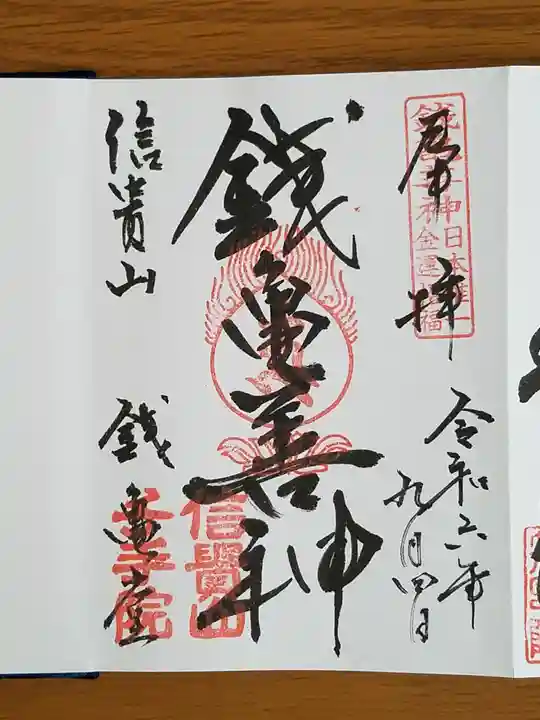 奉拝
令和六年
九月四日
銭亀善神日本唯一
金運福
銭亀善神
信貴山
銭亀堂
信貴山